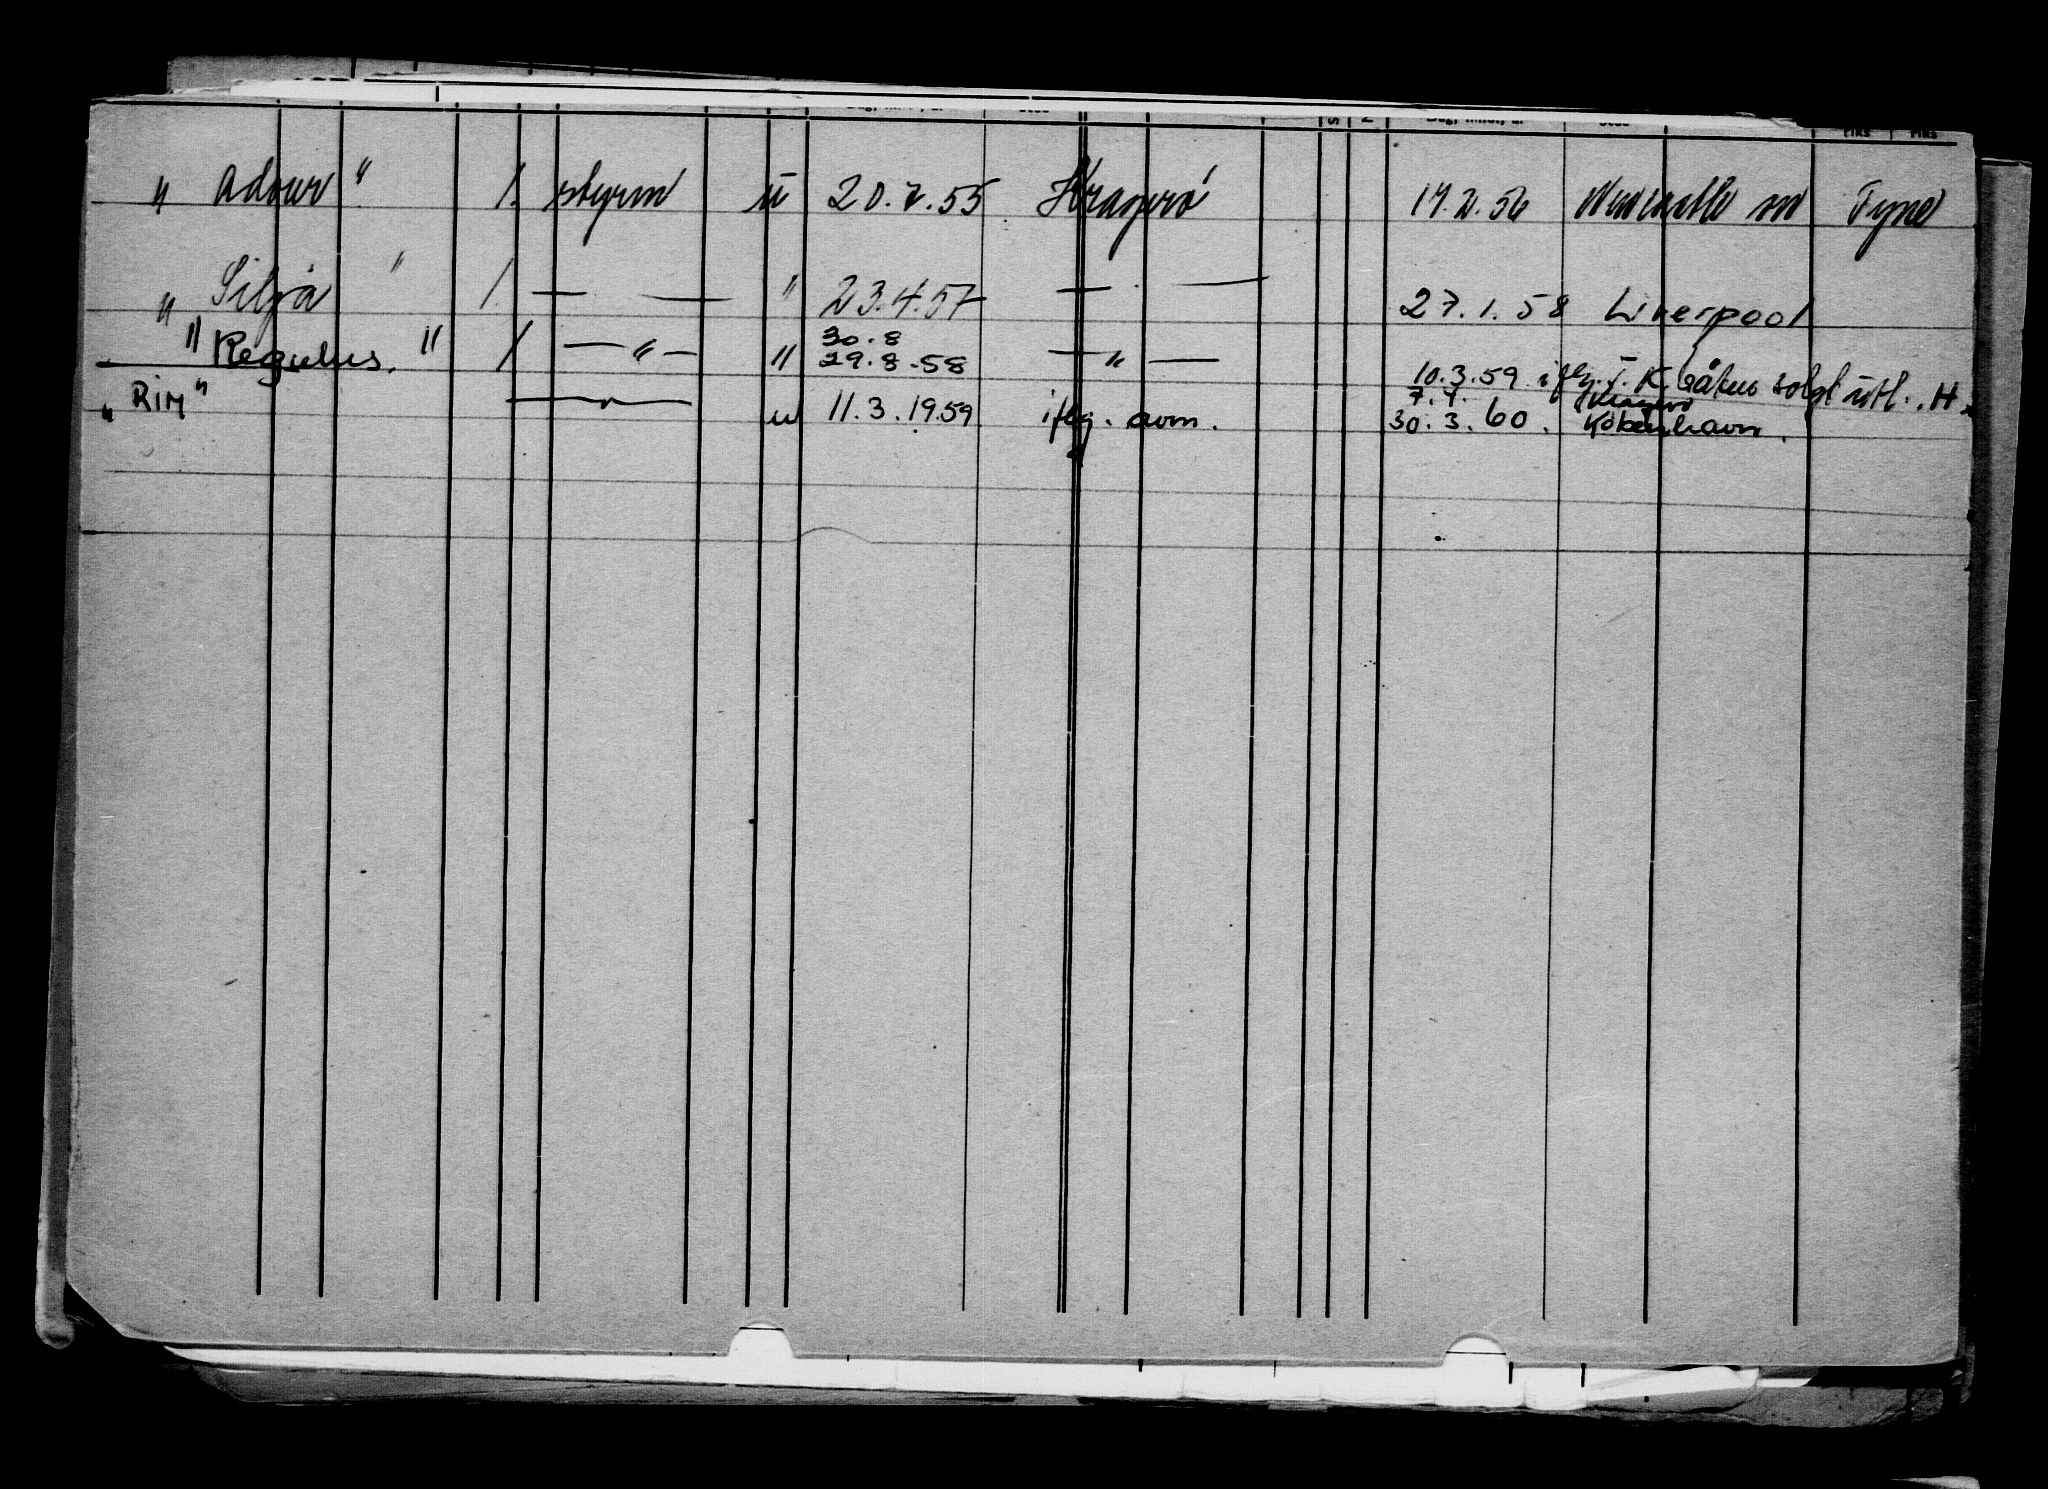 " Adour " 1. styrm u 20.7.55 Kragerø 17.2.56 Newcastle on Tyne
" Silja " 1. — — " 23.4.57 — — 27.1.58 Liverpool
" Regulus. " 1 — " — " 30.8 29.8.58 — " — 10.3.59 iflg. båten solgt utl. .H.
" RIM " — " — u 11.3.1959 iflg. avm. 7.4. Kragerø
30.3.60. København.